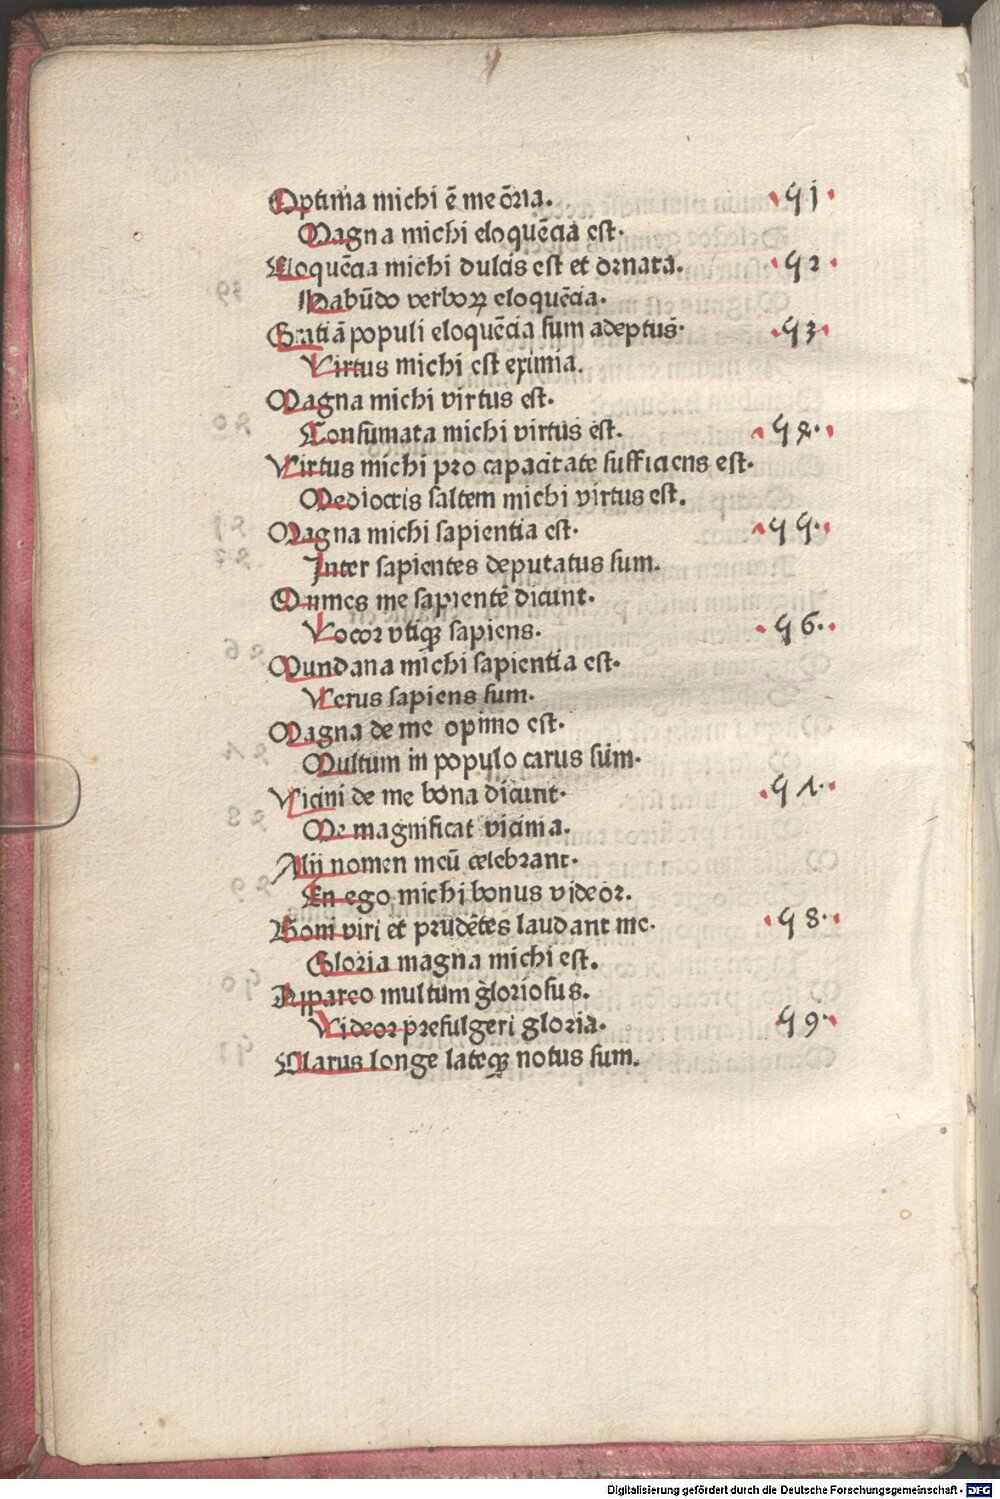 Optima michi ē me ōria. 91
Magna michi eloquēcia est.
Eloquēcia michi dulcis est et ornata. 92
Habūdo verboꝝ eloquēcia.
Gratiā populi eloquēcia sum adeptus. 93
Virtus michi est eximia.
Magna michi virtus est.
Consumata michi virtus est. 92.
Virtus michi pro capacitate sufficiens est.
Mediocris saltem michi virtus est.
Magna michi sapientia est. 99.
Inter sapientes deputatus sum.
Omnes me sapientē dicunt.
Vocor vtiqꝫ sapiens. 96.
Mundana michi sapientia est.
Verus sapiens sum.
Magna de me opinio est.
Multum in populo carus sum.
Vicini de me bona dicunt. 91.
Me magnificat vicinia.
Alii nomen meū celebrant.
En ego michi bonus videor.
Boni viri et prudētes laudant me. 98.
Gloria magna michi est.
Appareo multum gloriosus.
Videor prefulgeri gloria. 99.
Clarus longe lateqꝫ notus sum.
Digitalisierung gefördert durch die Deutsche Forschungsgemeinschaft - DFG